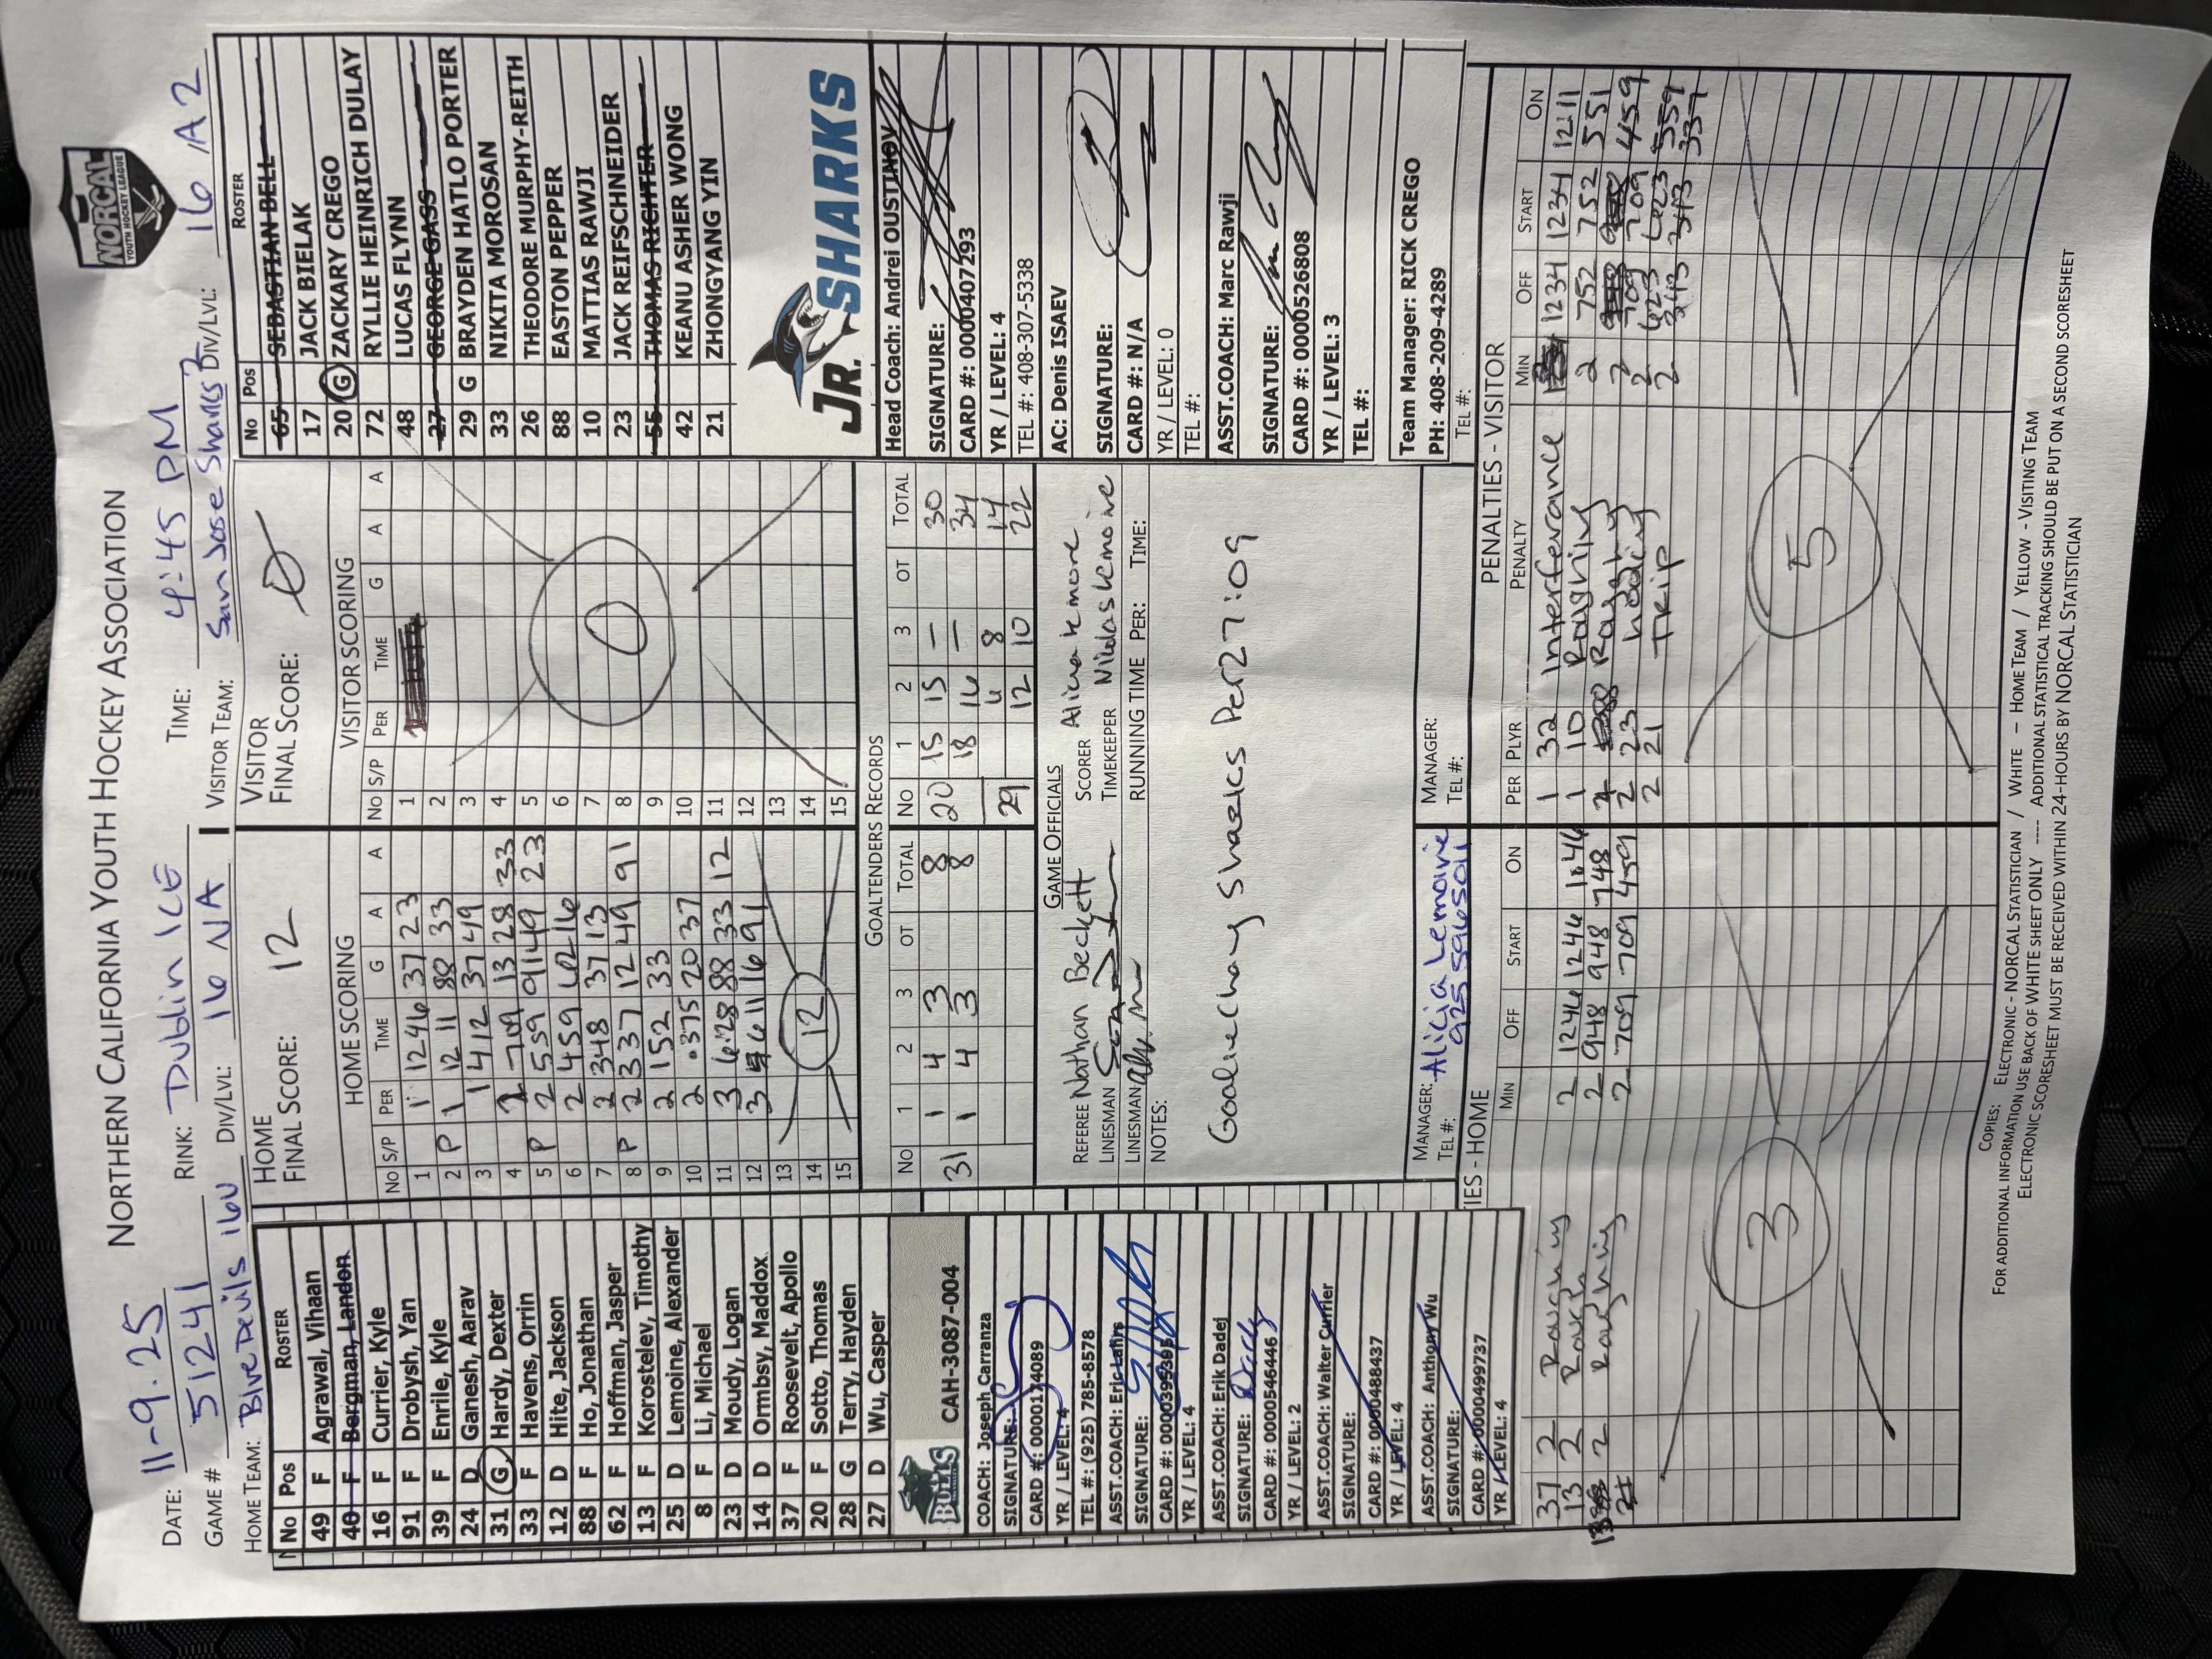 NORTHERN CALIFORNIA YOUTH HOCKEY ASSOCIATION
NORCAL
YOUTH HOCKEY LEAGUE
DATE: 11-9.25 RINK: Dublin ICE TIME: 4:45 PM
GAME # 51241
HOME TEAM: Blue Devils 16U DIV/LVL: 16 NA VISITOR TEAM: San Jose Sharks 2 DIV/LVL: 16 A2
No Pos ROSTER
49 F Agrawal, Vihaan
40 F Bergman, Landon
16 F Currier, Kyle
91 F Drobysh, Yan
39 F Enrile, Kyle
24 D Ganesh, Aarav
31 G Hardy, Dexter
33 F Havens, Orrin
12 D Hite, Jackson
88 F Ho, Jonathan
62 F Hoffman, Jasper
13 F Korostelev, Timothy
25 D Lemoine, Alexander
8 F Li, Michael
23 D Moudy, Logan
14 D Ormbsy, Maddox
37 F Roosevelt, Apollo
20 F Sotto, Thomas
28 G Terry, Hayden
27 D Wu, Casper
BULLS
CAH-3087-004
COACH: Joseph Carranza
SIGNATURE:
CARD #: 0000174089
YR / LEVEL: 4
TEL #: (925) 785-8578
ASST.COACH: Eric Lahrs
SIGNATURE:
CARD #: 0000395395
YR / LEVEL: 4
ASST.COACH: Erik Dadej
SIGNATURE:
CARD #: 0000546446
YR / LEVEL: 2
ASST.COACH: Walter Currier
SIGNATURE:
CARD #: 0000488437
YR / LEVEL: 4
ASST.COACH: Anthony Wu
SIGNATURE:
CARD #: 0000499737
YR / LEVEL: 4
HOME
FINAL SCORE: 12
HOME SCORING
No S/P PER TIME G A A
1 1 1246 37 23
2 P 1 1211 88 33
3 1 412 37 49
4 2 709 13 28 33
5 P 2 559 91 49 23
6 2 459 62 16
7 2 348 37 13
8 P 2 337 12 49 91
9 2 152 33
10 2 .375 20 37
11 3 628 88 33 12
12 3 611 16 91
13
14 12
15
VISITOR
FINAL SCORE: 0
VISITOR SCORING
No S/P PER TIME G A A
1
2
3
4
5
6
7
8
9
10
11
12
13
14
15
0
GOALTENDERS RECORDS
No 1 2 3 OT TOTAL No 1 2 3 OT TOTAL
31 1 4 3 8 20 15 15 — 30
1 4 3 8 18 16 — 34
6 8 14
29 12 10 22
GAME OFFICIALS
REFEREE Nathan Beckett SCORER Alicia Lemoine
LINESMAN TIMEKEEPER Nikolas Lemoine
LINESMAN RUNNING TIME PER: TIME:
NOTES:
Goalie Chay Sharks Per 2 7:09
MANAGER: Alicia Lemoine MANAGER:
TEL #: 925 5965011 TEL #:
No Pos ROSTER
65 SEBASTIAN BELL
17 JACK BIELAK
20 G ZACKARY CREGO
72 RYLLIE HEINRICH DULAY
48 LUCAS FLYNN
27 GEORGE GASS
29 G BRAYDEN HATLO PORTER
33 NIKITA MOROSAN
26 THEODORE MURPHY-REITH
88 EASTON PEPPER
10 MATTIAS RAWJI
23 JACK REIFSCHNEIDER
55 THOMAS RICHTER
42 KEANU ASHER WONG
21 ZHONGYANG YIN
JR. SHARKS
Head Coach: Andrei OUSTINOV
SIGNATURE:
CARD #: 0000407293
YR / LEVEL: 4
TEL #: 408-307-5338
AC: Denis ISAEV
SIGNATURE:
CARD #: N/A
YR / LEVEL: 0
TEL #:
ASST.COACH: Marc Rawji
SIGNATURE:
CARD #: 0000526808
YR / LEVEL: 3
TEL #:
Team Manager: RICK CREGO
PH: 408-209-4289
TEL #:
IES - HOME
MIN OFF START ON
37 2 Roughing 2 1246 1246 1046
13 2 Rough 2 948 948 748
13 2 Roughing 2 709 709 459
3
PENALTIES - VISITOR
PER PLYR PENALTY MIN OFF START ON
1 32 Interferance 1234 1234 1211
1 10 Roughing 2 752 752 551
2 Roughing 2 709 709 459
2 23 holding 2 623 623 559
2 21 Trip 2 343 343 337
5
COPIES: ELECTRONIC - NORCAL STATISTICIAN / WHITE – HOME TEAM / YELLOW - VISITING TEAM
FOR ADDITIONAL INFORMATION USE BACK OF WHITE SHEET ONLY ---- ADDITIONAL STATISTICAL TRACKING SHOULD BE PUT ON A SECOND SCORESHEET
ELECTRONIC SCORESHEET MUST BE RECEIVED WITHIN 24-HOURS BY NORCAL STATISTICIAN